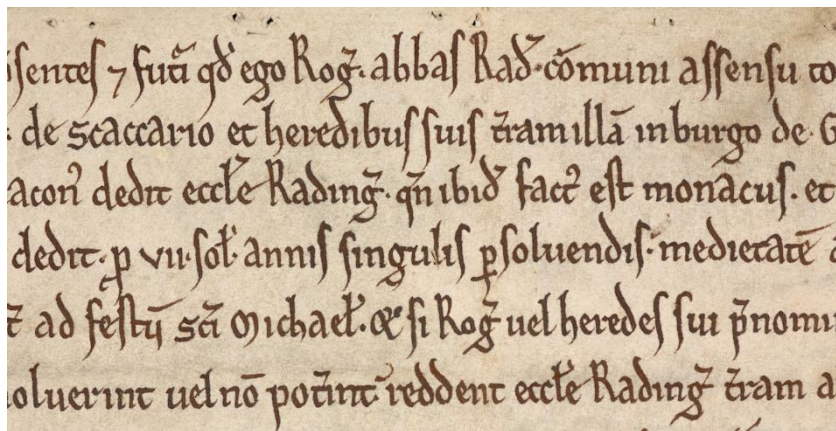 sentes ⁊ fut̄i qđ ego Rog̃. abbas Rad̃. cōmuni assensu to
de scaccario et heredibus suis t̃ram illā in burgo de G
acon̄ dedit eccłe Rading̃. qn̄ ibid̃ fact̃ est monacus. et
dedit. ꝑ vii. soł. annis singulis ꝑsoluendis. medietatē
t̃ ad festū sc̄i Michaeł. & si Rog̃ uel heredes sui p̃nomi
oluerint uel nō pot̃int reddent eccłe Rading̃ t̃ram a